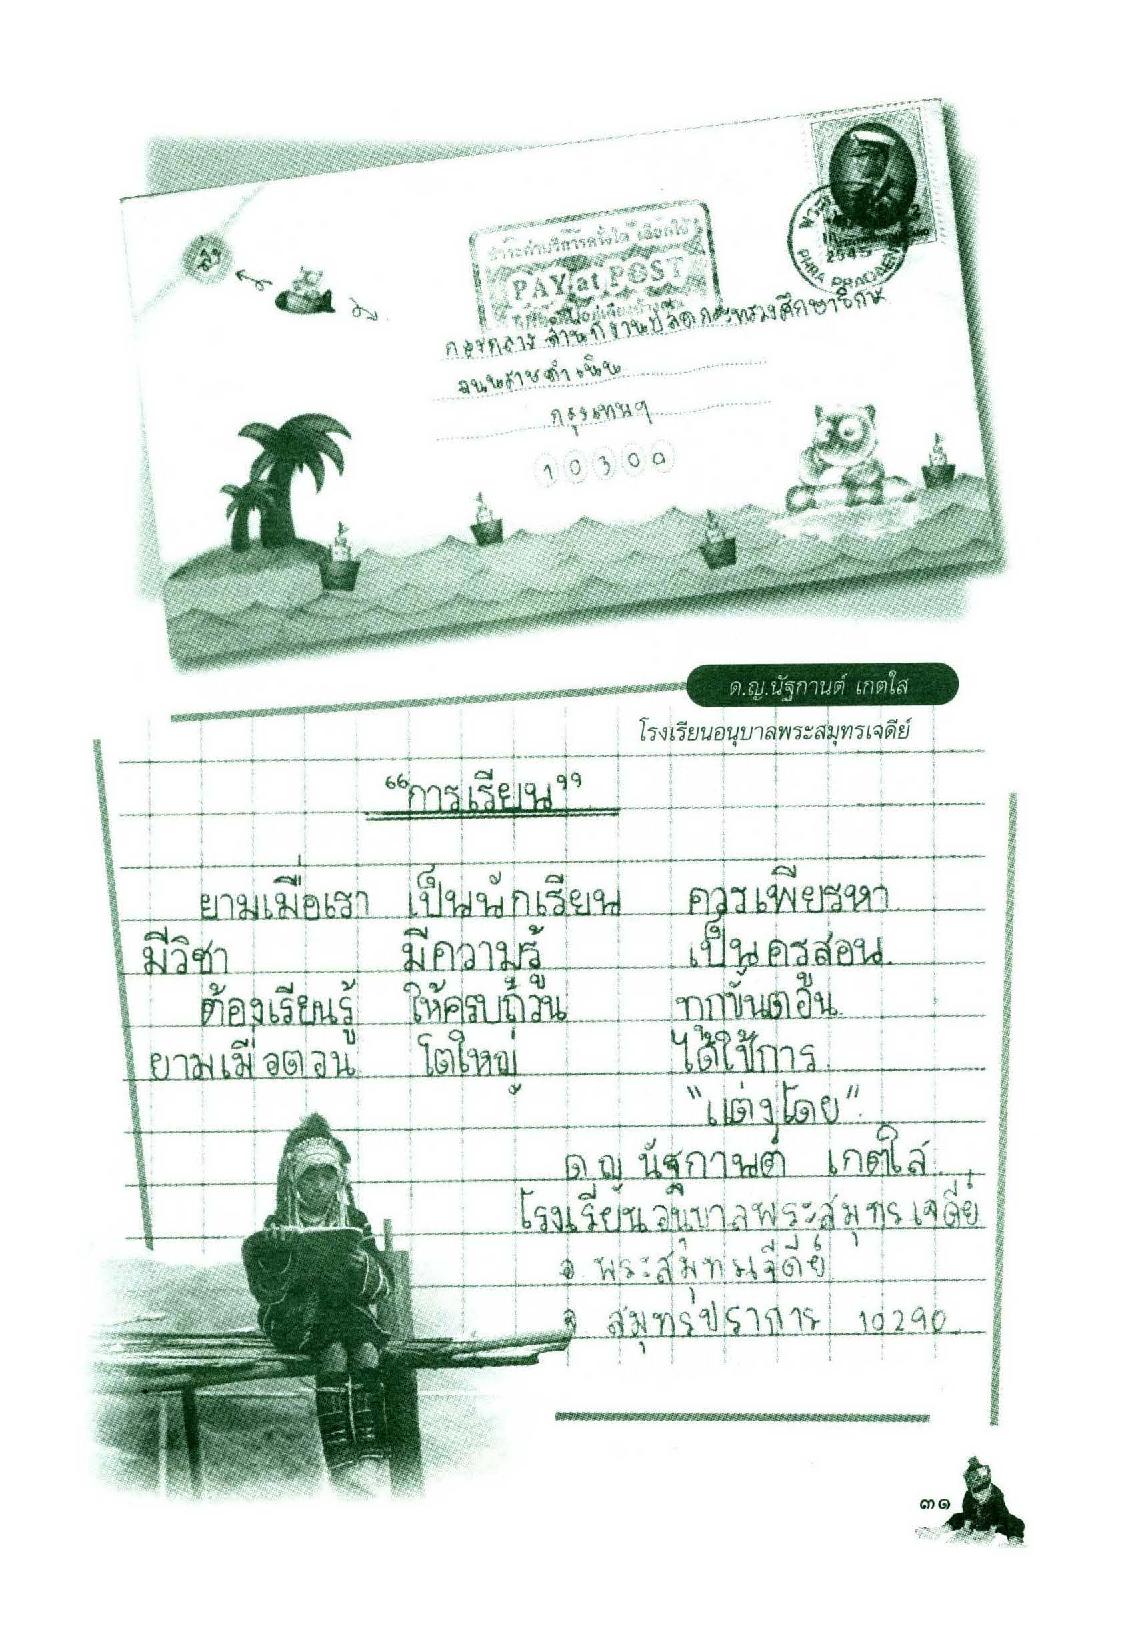 PAY at POST
กองกลาง สำนักงานปลัดกระทรวงศึกษาธิการ
ถนนราชดำเนิน
กรุงเทพฯ
10300
ด.ญ.นัฐกานต์ เกตใส
โรงเรียนอนุบาลพระสมุทรเจดีย์
“การเรียน”
ยามเมื่อเรา เป็นนักเรียน ควรเพียรหา
มีวิชา มีความรู้ เป็นครูสอน
ต้องเรียนรู้ ให้ครบถ้วน ทุกขั้นตอน
ยามเมื่อตอน โตใหญ่ ได้ใช้การ
"แต่งโดย"
ด.ญ นัฐกานต์ เกตใส
โรงเรียนอนุบาลพระสมุทรเจดีย์
อ พระสมุทรเจดีย์
จ สมุทรปราการ 10290
๓๑